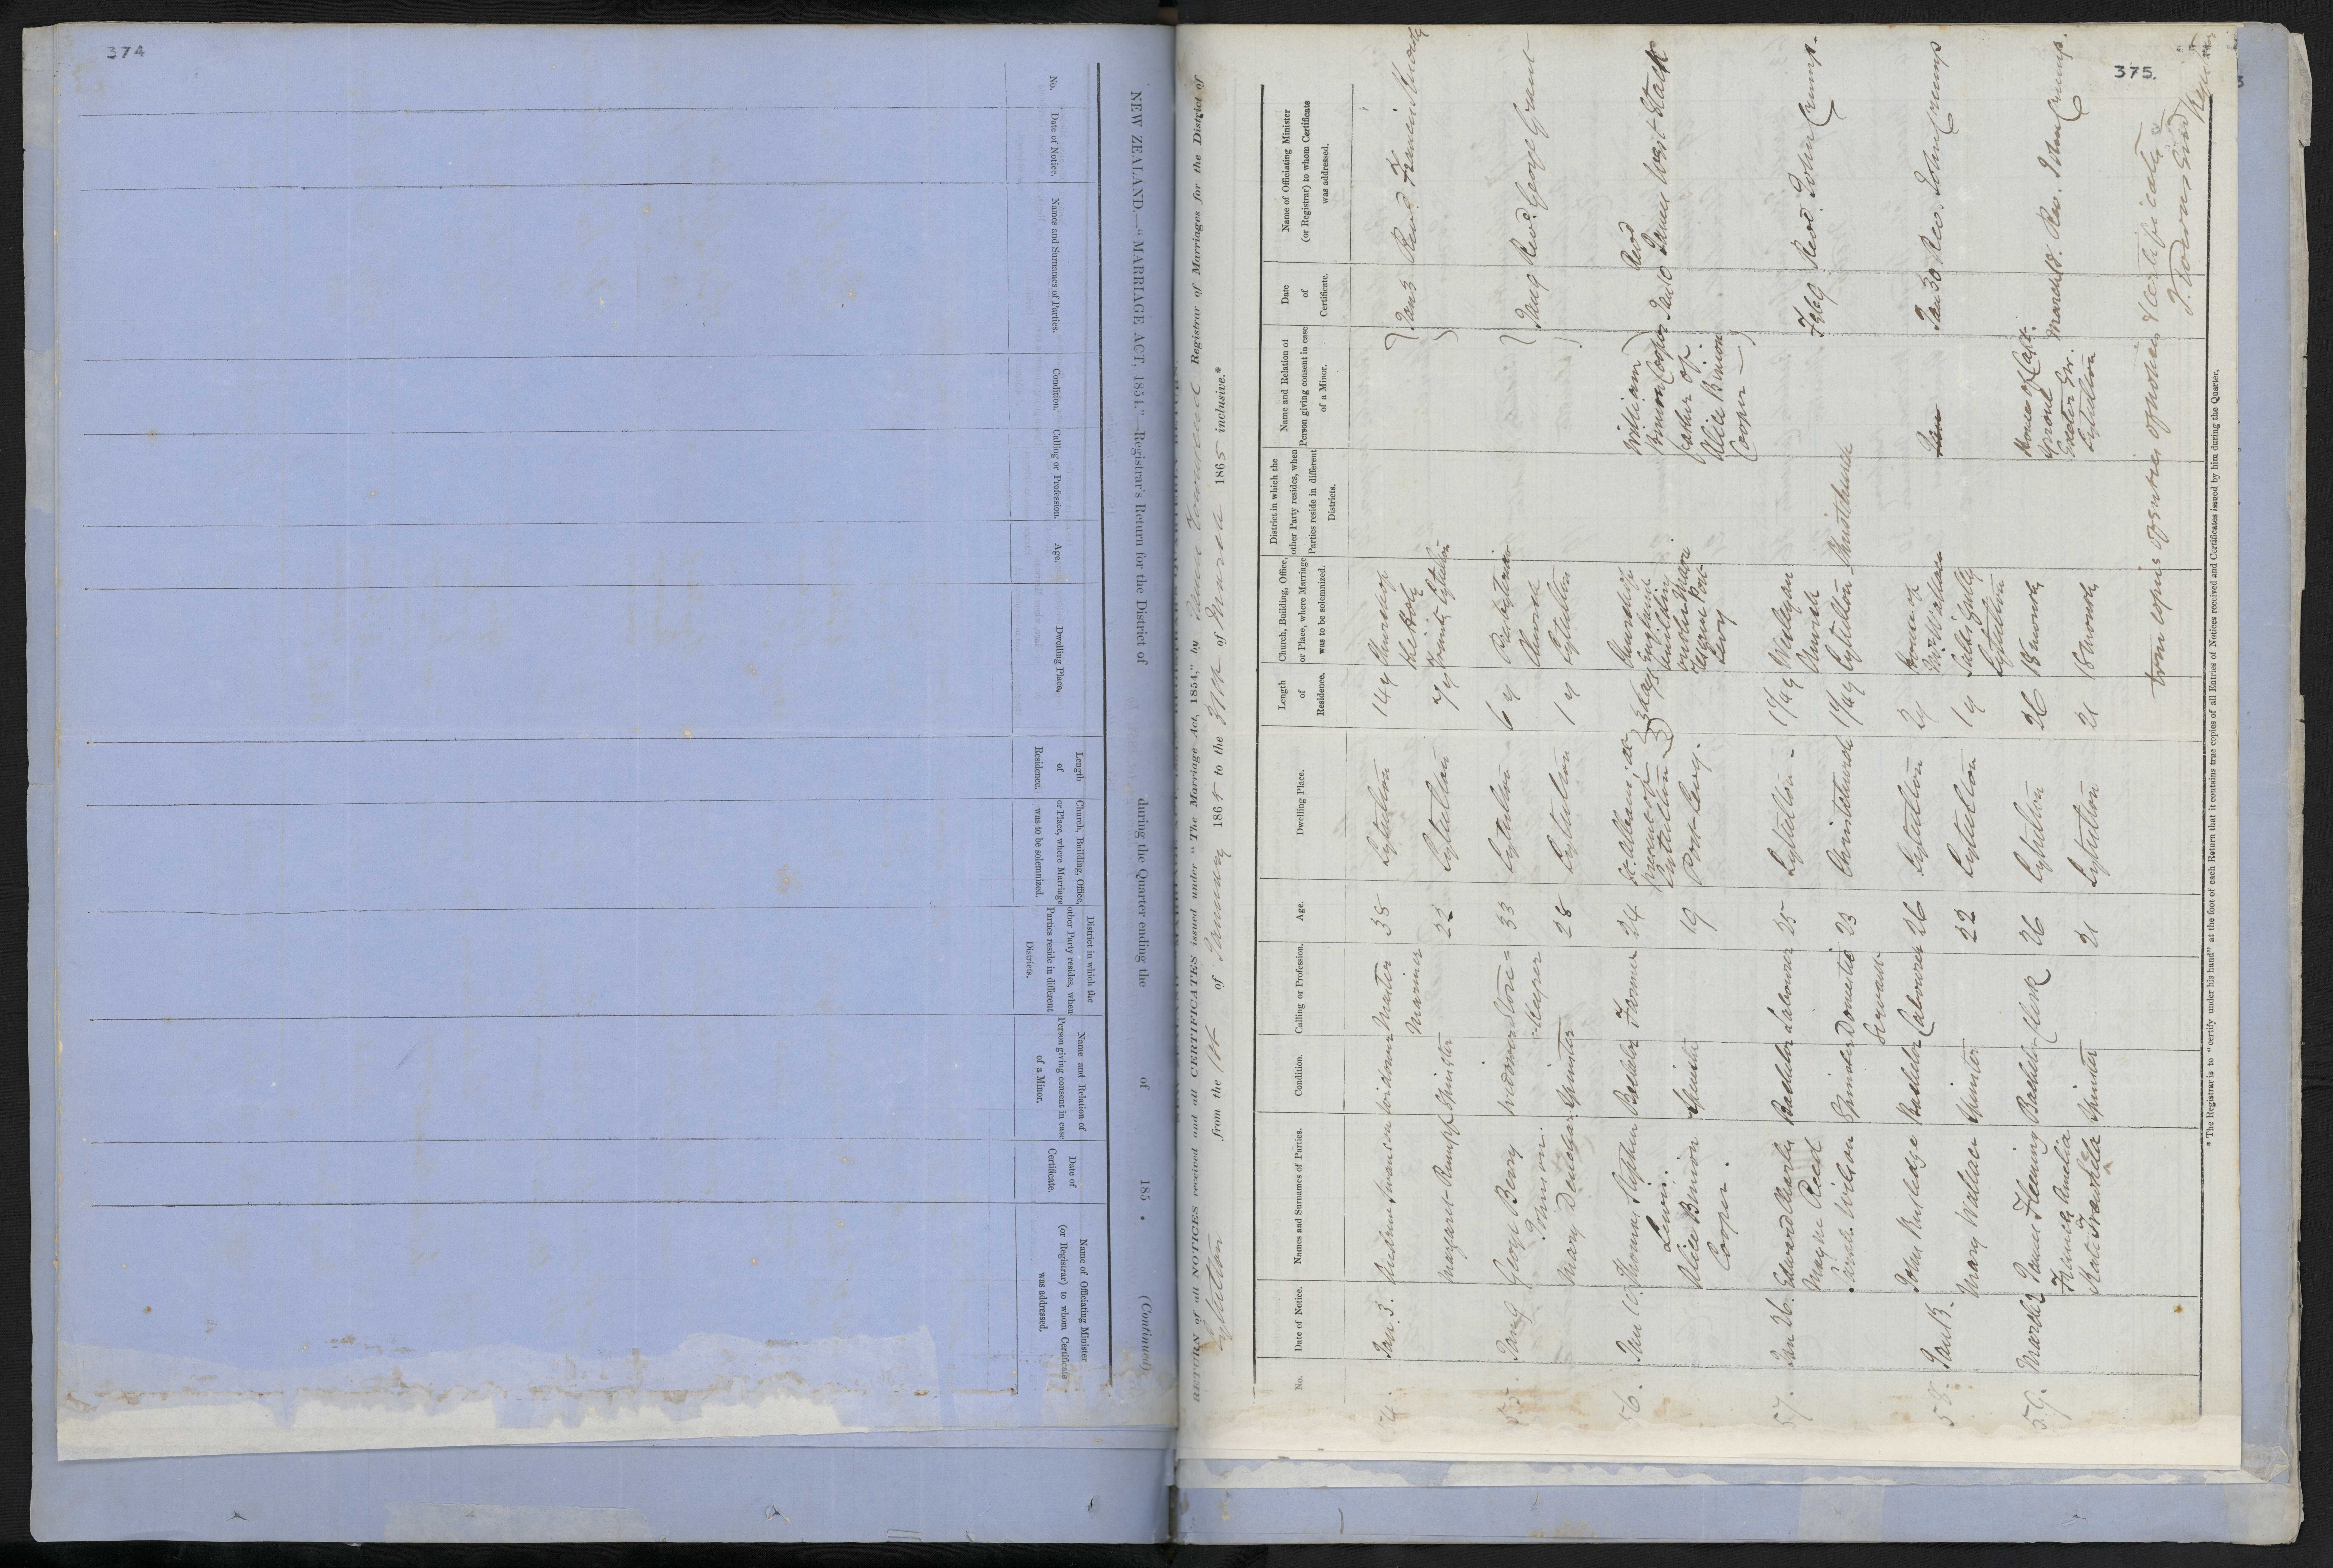 374
NEW ZEALAND.—"MARRIAGE ACT, 1854."—Registrar's Return for the District of during the Quarter ending the of 185 . (Continued)
No.
Date of Notice.
Names and Surnames of Parties.
Condition.
Calling or Profession.
Age.
Dwelling Place.
Length
of
Residence.
Church, Building, Office,
or Place, where Marriage
was to be solemnized.
District in which the
other Party resides, when
Parties reside in different
Districts.
Name and Relation of
Person giving consent in case
of a Minor.
Date of
Certificate.
Name of Officiating Minister
(or Registrar) to whom Certificate
was addressed.
375.
RETURN of all NOTICES received and all CERTIFICATES issued under "The Marriage Act, 1854," by Registrar of Marriages for the District of
Lyttelton from the 1st of January 1865 to the 31st of March 1865 inclusive.*
No.
Date of Notice.
Names and Surnames of Parties.
Condition.
Calling or Profession.
Age.
Dwelling Place.
Length
of
Residence.
Church, Building, Office,
or Place, where Marriage
was to be solemnized.
District in which the
other Party resides, when
Parties reside in different
Districts.
Name and Relation of
Person giving consent in case
of a Minor.
Date
of
Certificate.
Name of Officiating Minister
(or Registrar) to whom Certificate
was addressed.
54.
Jan 3.
Andrew Swanson
Widower
Master
Mariner
38
Lyttelton
14 y
Church of
the Holy
Trinity Lyttelton
Jan 3
Revd.
Margaret
Spinster
22
Lyttelton
7 y
55.
Jan 9
George Henry
Widower
Store-
keeper
33
Lyttelton
6 y
Presbyterian
Church
Lyttelton
Jan 9
Revd. George Grant
Mary
Spinster
28
Lyttelton
1 y
56.
Jan 10.
Thomas Stephen
Lewin.
Bachelor
Farmer
24
3 days
Church of
England
building
Port
Levy
William
Binion Cooper
father of
Alice Binion
Cooper
Jan 10
Revd
James West Stack
Alice Binion
Cooper.
Spinster
19
Port Levy.
57.
Jan 26.
Edward
Bachelor
Labourer
25
Lyttelton
Wesleyan
Church
Lyttelton
Christchurch
Feb 9
Revd. John Crump.
Sarah Wilson
Spinster
Domestic
Servant
23
Christchurch
58.
John Rutledge
Bachelor
Labourer
26
Lyttelton
2 y
House of
Mr Wallace
Salts Gully
Lyttelton
Jan
Jan 30
Rev. John Crump
Mary Wallace
Spinster
22
Lyttelton
1 y
59.
March
James Fleming
Bachelor
Clerk
26
Lyttelton
26
18 month
House of Capt.
Sproul
Exeter St.
Lyttelton
March
Rev. John Crump.
Frances Amelia
Kate
Spinster
21
Lyttelton
21
18 month
True copies of entries of notices & certificates
* The Registrar is to "certify under his hand" at the foot of each Return that it contains true copies of all Entries of Notices received and Certificates issued by him during the Quarter.